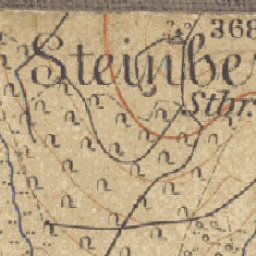 368
Steinbe
Stbr.